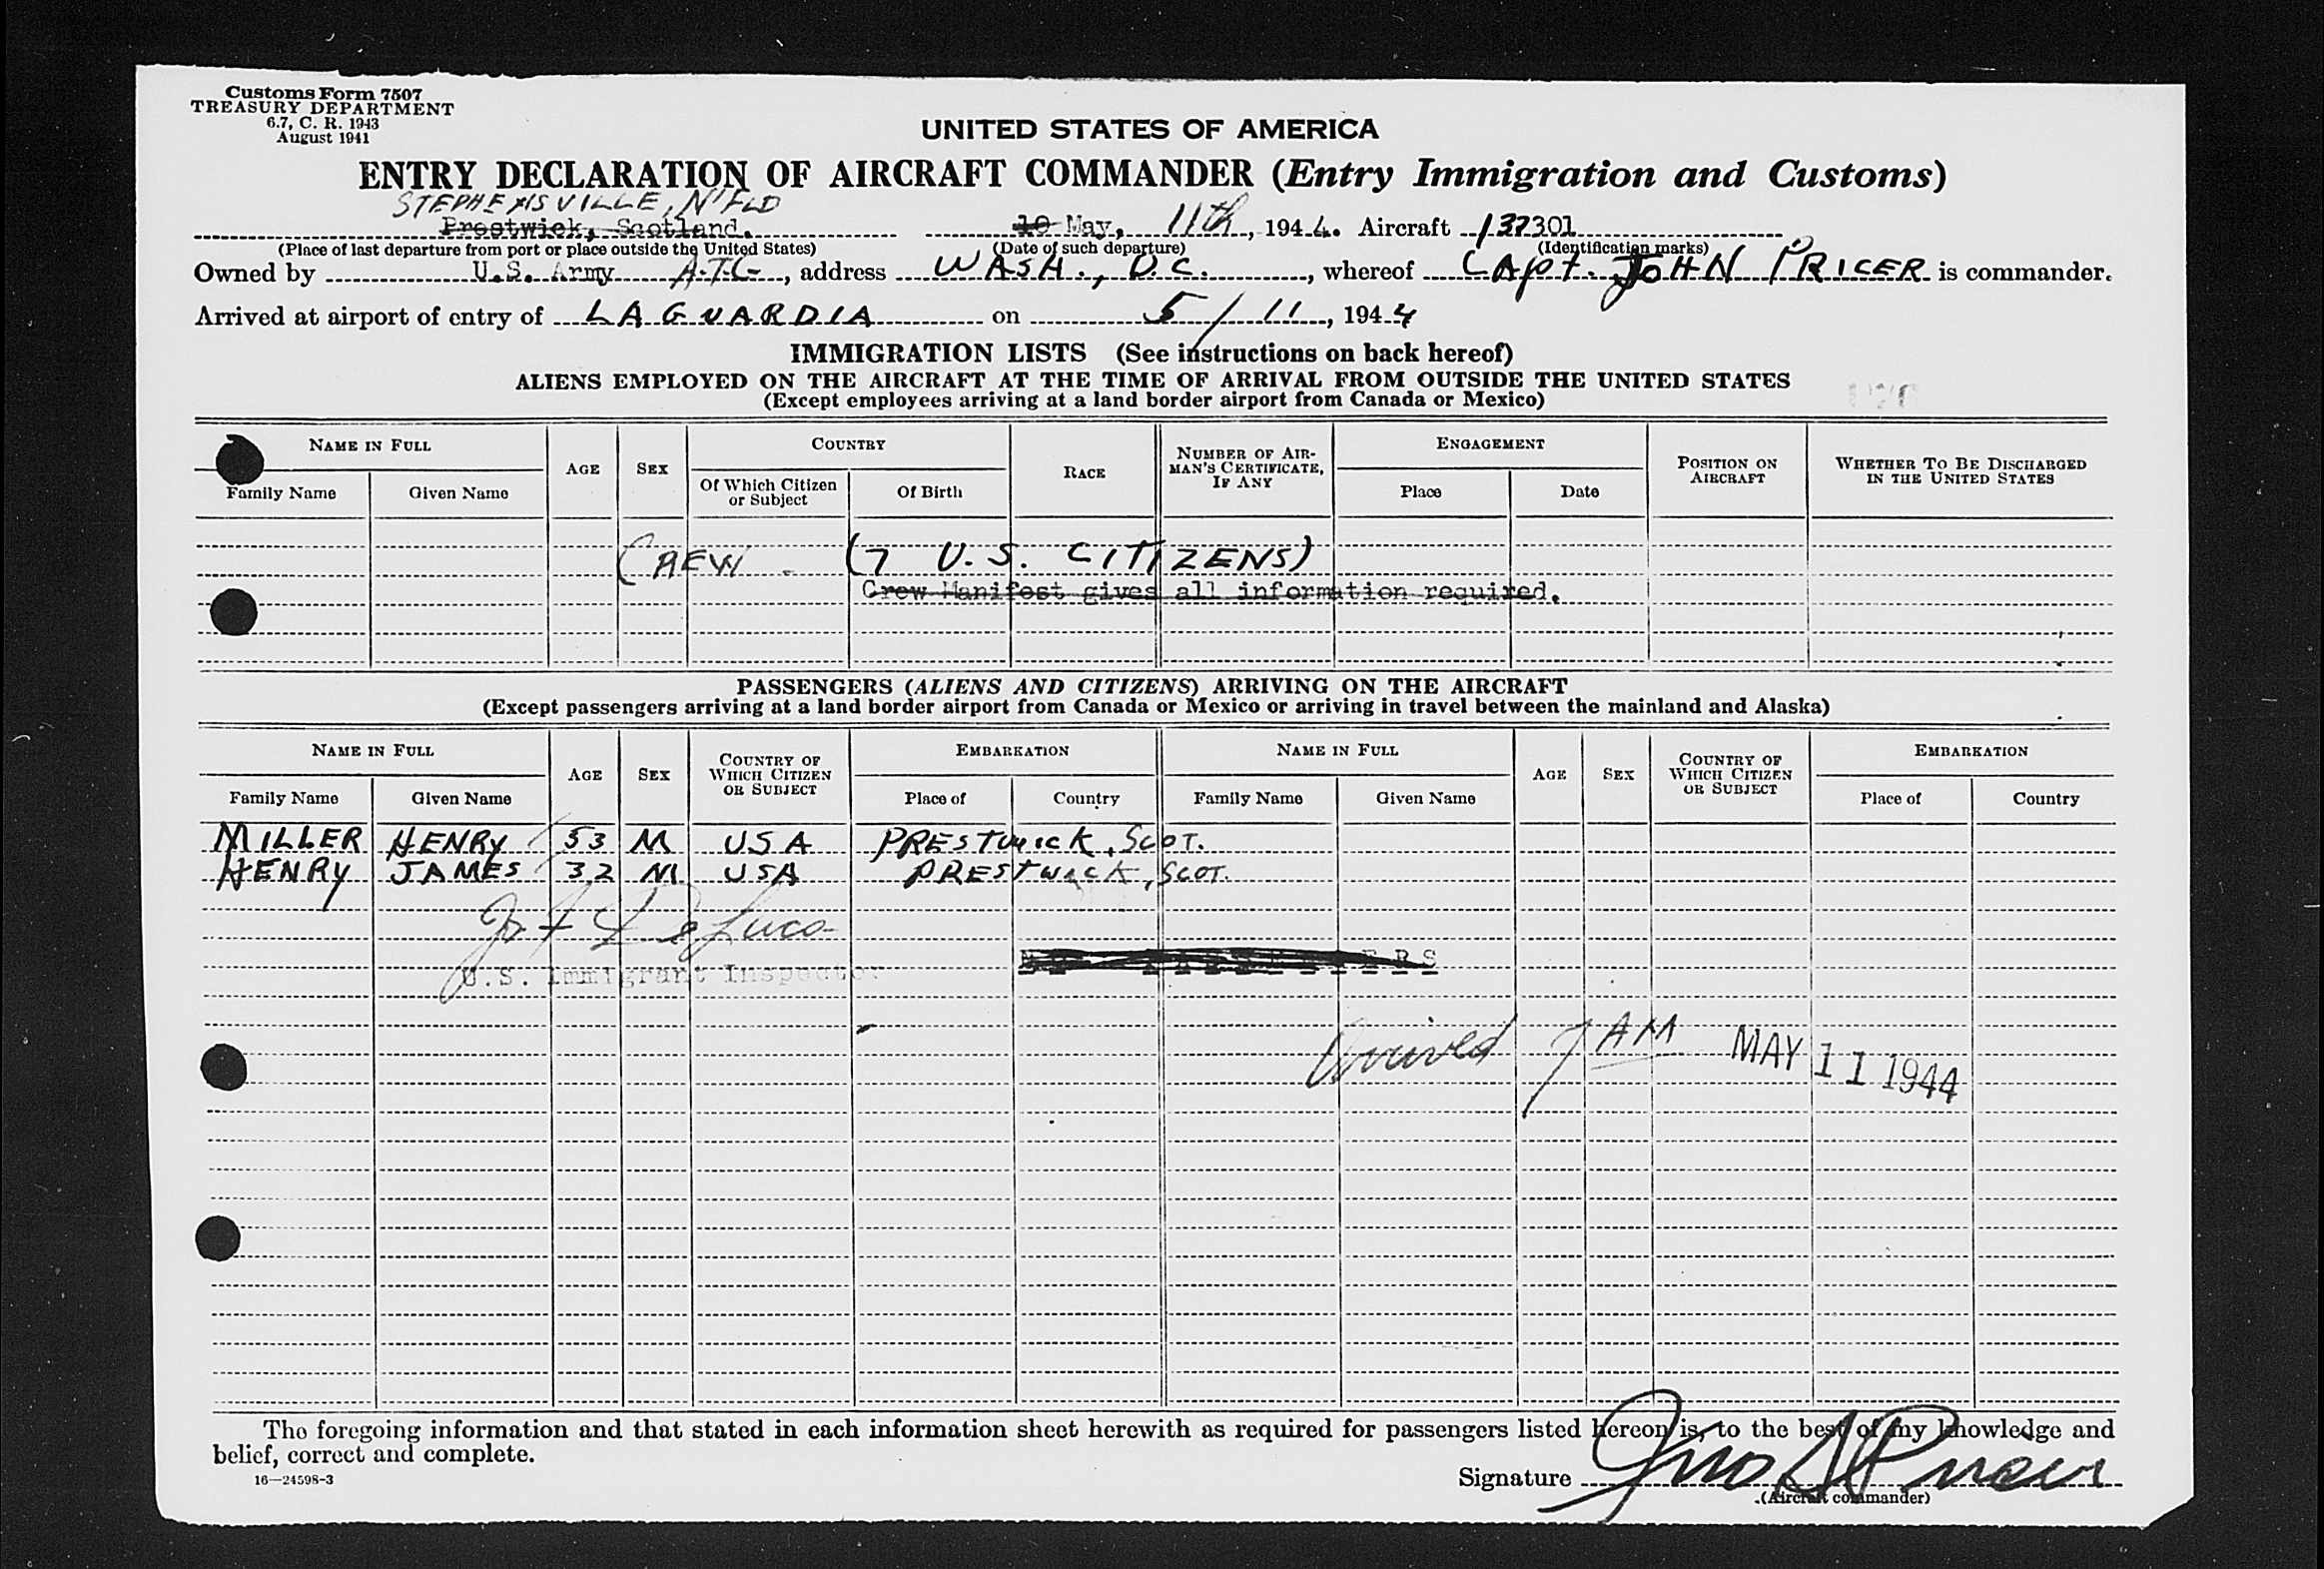 Customs Form 7507
TREASURY DEPARTMENT
6.7, C. R. 1943
August 1941
UNITED STATES OF AMERICA
ENTRY DECLARATION OF AIRCRAFT COMMANDER (Entry Immigration and Customs)
STEPHENSVILLE, N'FLD
Prestwick, Scotland. 10 May, 11th, 1944. Aircraft 137301
(Place of last departure from port or place outside the United States) (Date of such departure) (Identification marks)
Owned by U.S. Army A.T.C., address WASH., D.C., whereof CApt. JOHN PRICER is commander.
Arrived at airport of entry of LAGUARDIA on 5/11, 1944
IMMIGRATION LISTS (See instructions on back hereof)
ALIENS EMPLOYED ON THE AIRCRAFT AT THE TIME OF ARRIVAL FROM OUTSIDE THE UNITED STATES
(Except employees arriving at a land border airport from Canada or Mexico)
NAME IN FULL AGE SEX COUNTRY RACE NUMBER OF AIRMAN'S CERTIFICATE, IF ANY ENGAGEMENT POSITION ON AIRCRAFT WHETHER TO BE DISCHARGED IN THE UNITED STATES
Family Name Given Name Of Which Citizen or Subject Of Birth Place Date
CREW - (7 U.S. CITIZENS)
Crew Manifest gives all information required.
PASSENGERS (ALIENS AND CITIZENS) ARRIVING ON THE AIRCRAFT
(Except passengers arriving at a land border airport from Canada or Mexico or arriving in travel between the mainland and Alaska)
NAME IN FULL AGE SEX COUNTRY OF WHICH CITIZEN OR SUBJECT EMBARKATION NAME IN FULL AGE SEX COUNTRY OF WHICH CITIZEN OR SUBJECT EMBARKATION
Family Name Given Name Place of Country Family Name Given Name Place of Country
MILLER HENRY 53 M USA PRESTWICK, SCOT.
HENRY JAMES 32 M USA PRESTWICK, SCOT.
De Luca
U.S. Immigrant Inspector
Arrived 7 AM MAY 11 1944
The foregoing information and that stated in each information sheet herewith as required for passengers listed hereon is, to the best of my knowledge and
belief, correct and complete.
16—24598-3
Signature Jno Pricer
(Aircraft commander)